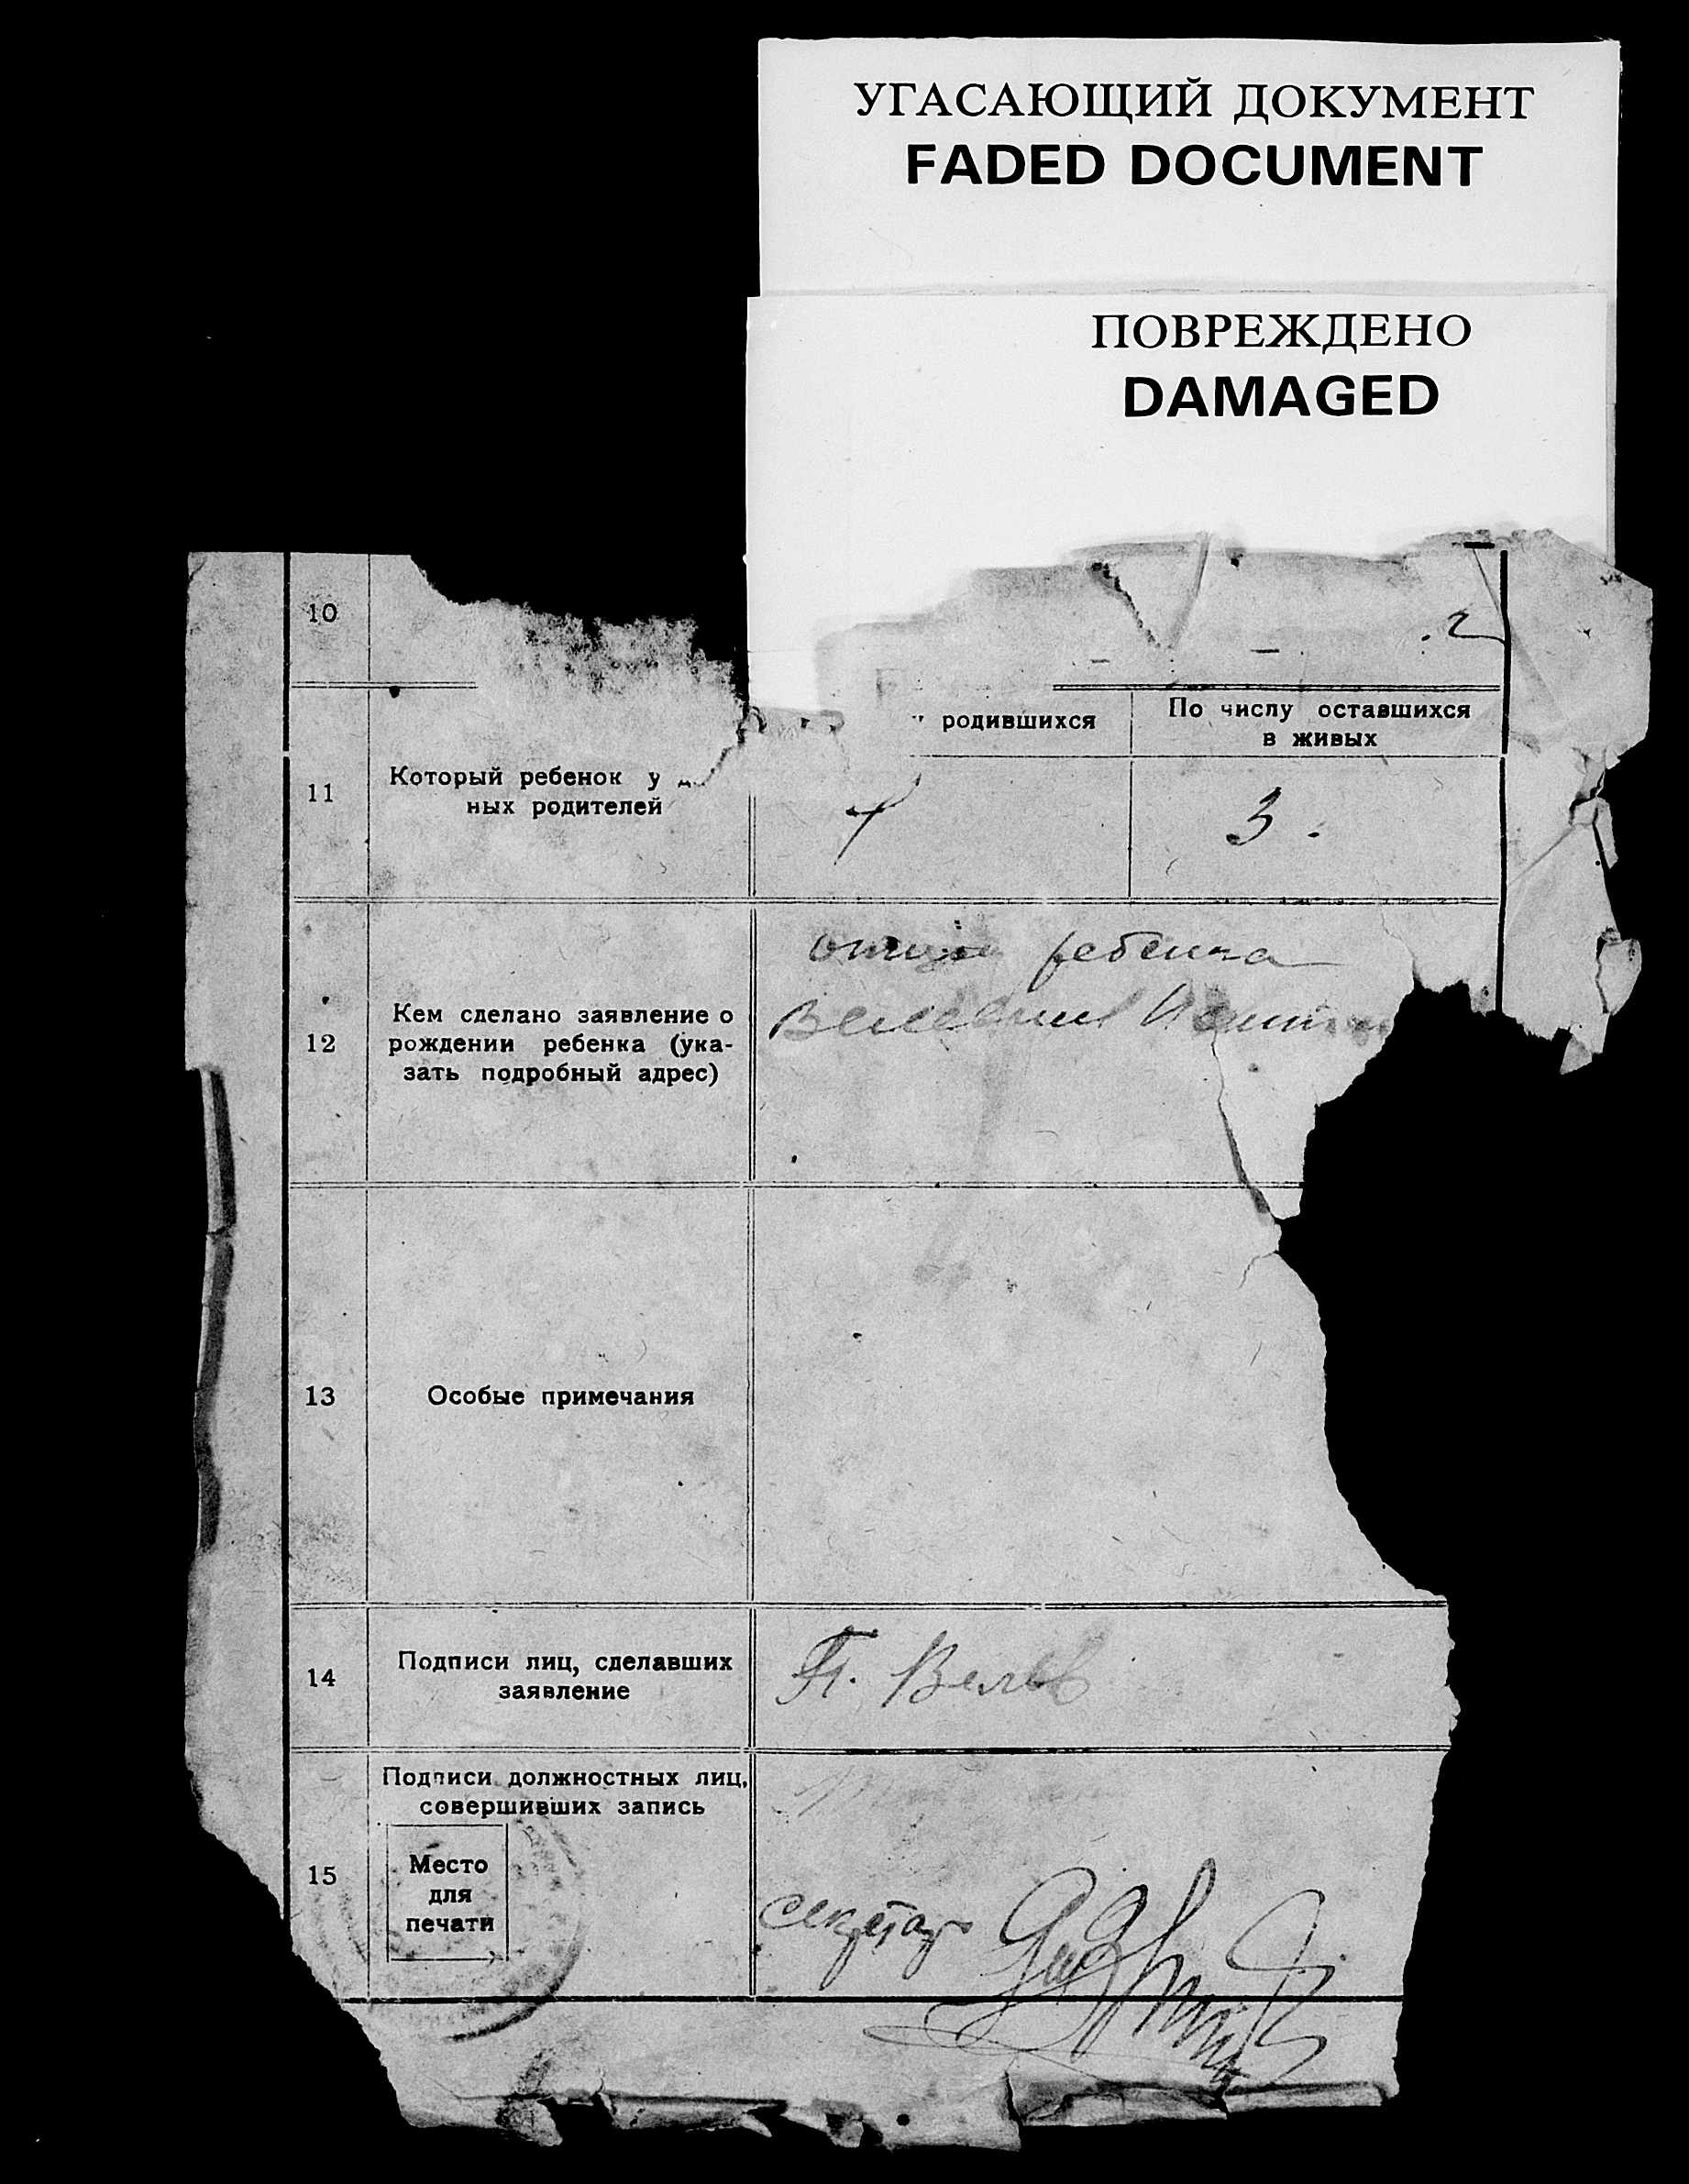 УГАСАЮЩИЙ ДОКУМЕНТ
FADED DOCUMENT
ПОВРЕЖДЕНО
DAMAGED
10
родившихся
По числу оставшихся
в живых
11
Который ребенок у
ных родителей
3.
12
Кем сделано заявление о
рождении ребенка (ука-
зать подробный адрес)
ребенка
13
Особые примечания
14
Подписи лиц, сделавших
заявление
15
Подписи должностных лиц,
совершивших запись
Место
для
печати
секретарь